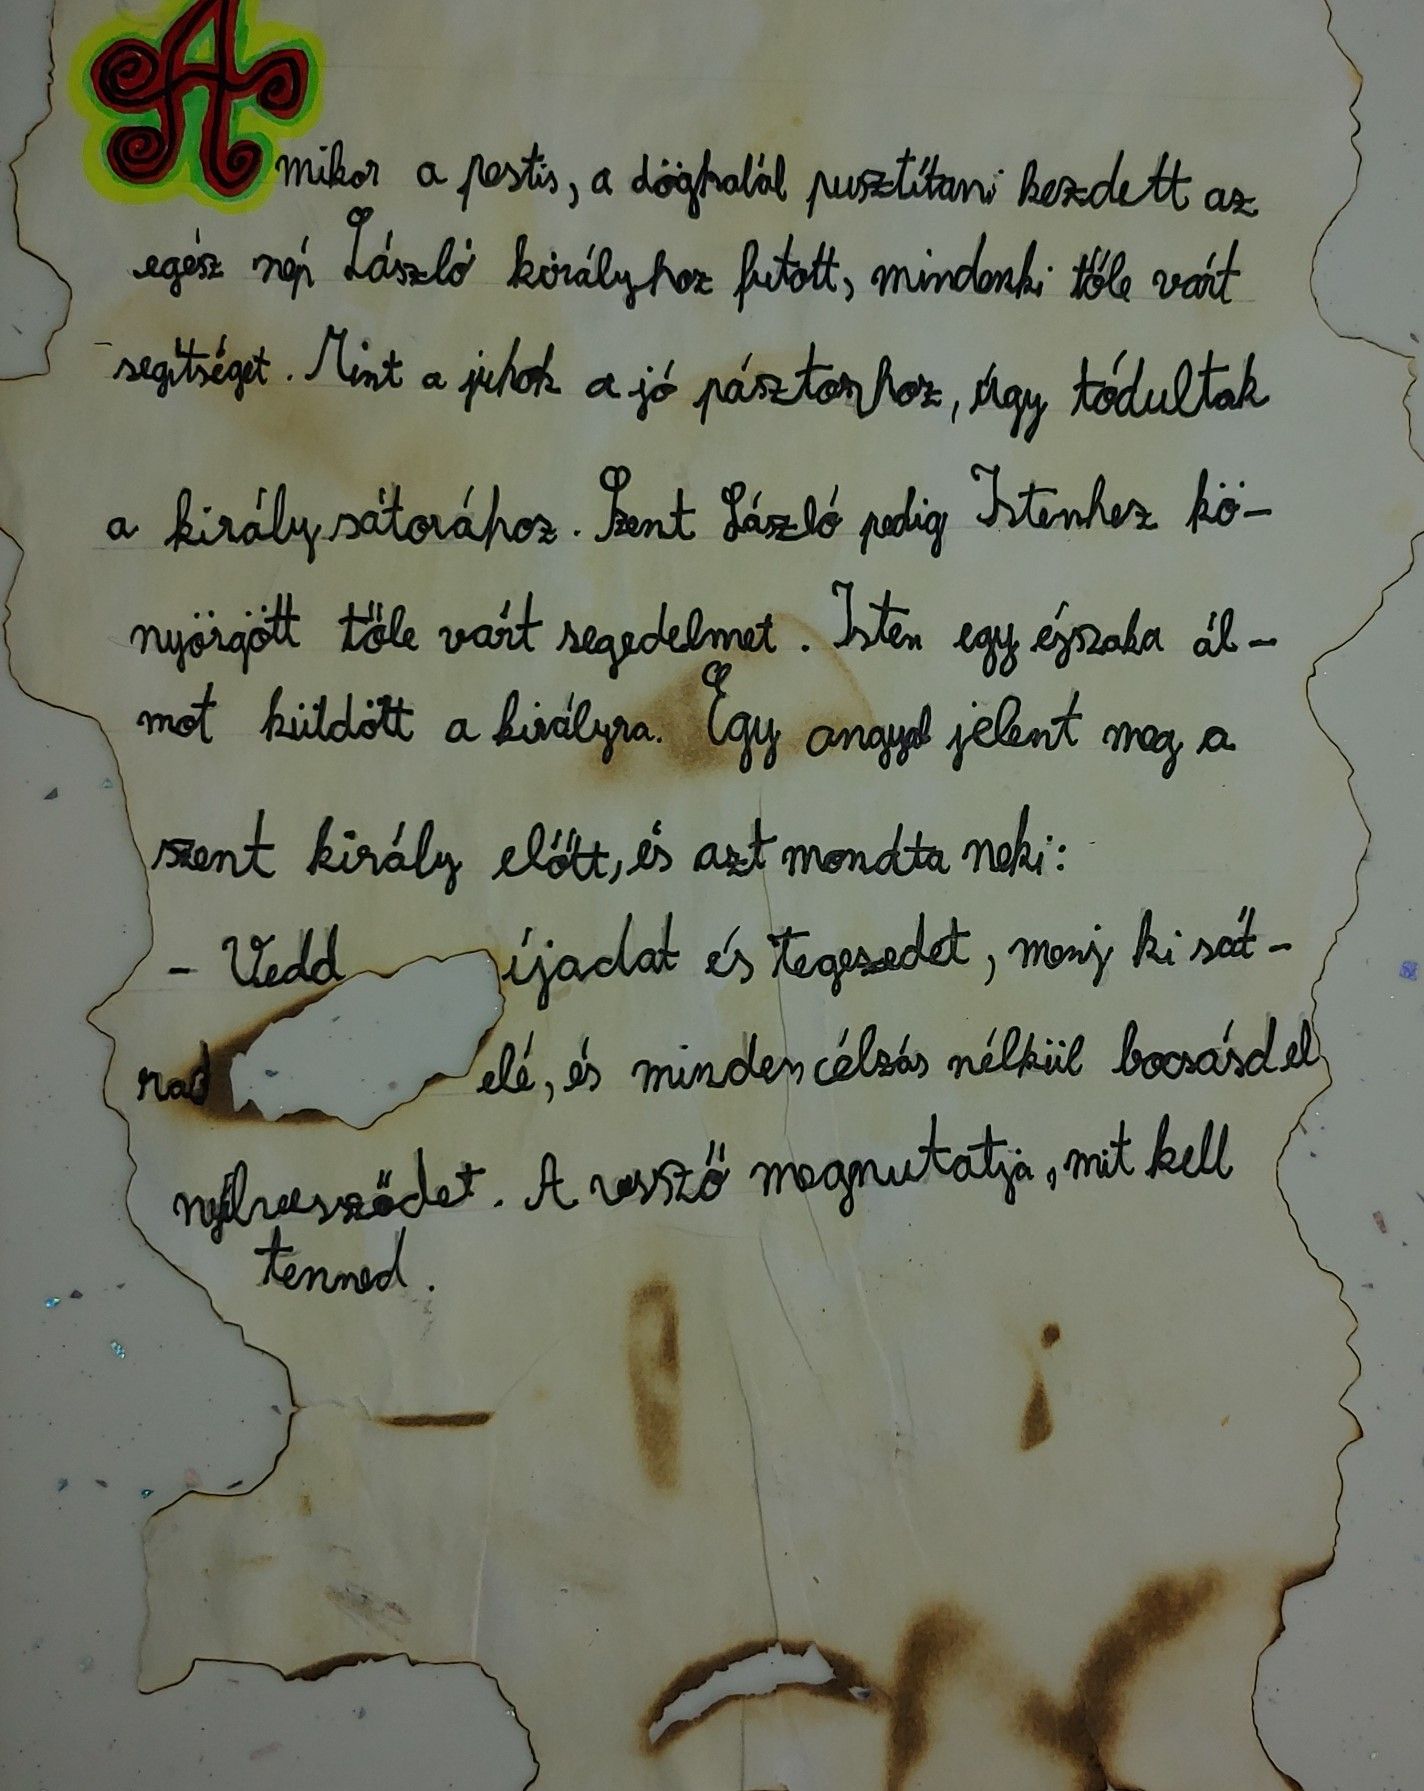 Amikor a pestis, a döghalál pusztítani kezdett az
egész nép László királyhoz futott, mindenki tőle várt
segítséget. Mint a juhok a jó pásztorhoz, úgy tódultak
a király sátorához. Szent László pedig Istenhez kö-
nyörgött tőle várt segedelmet. Isten egy éjszaka ál-
mot küldött a királyra. Egy angyal jelent meg a
szent király előtt, és azt mondta neki:
- Vedd íjadat és tegezedet, menj ki sát-
rad elé, és minden célzás nélkül bocsásd el
nyílvesződet. A vessző megmutatja, mit kell
tenned.